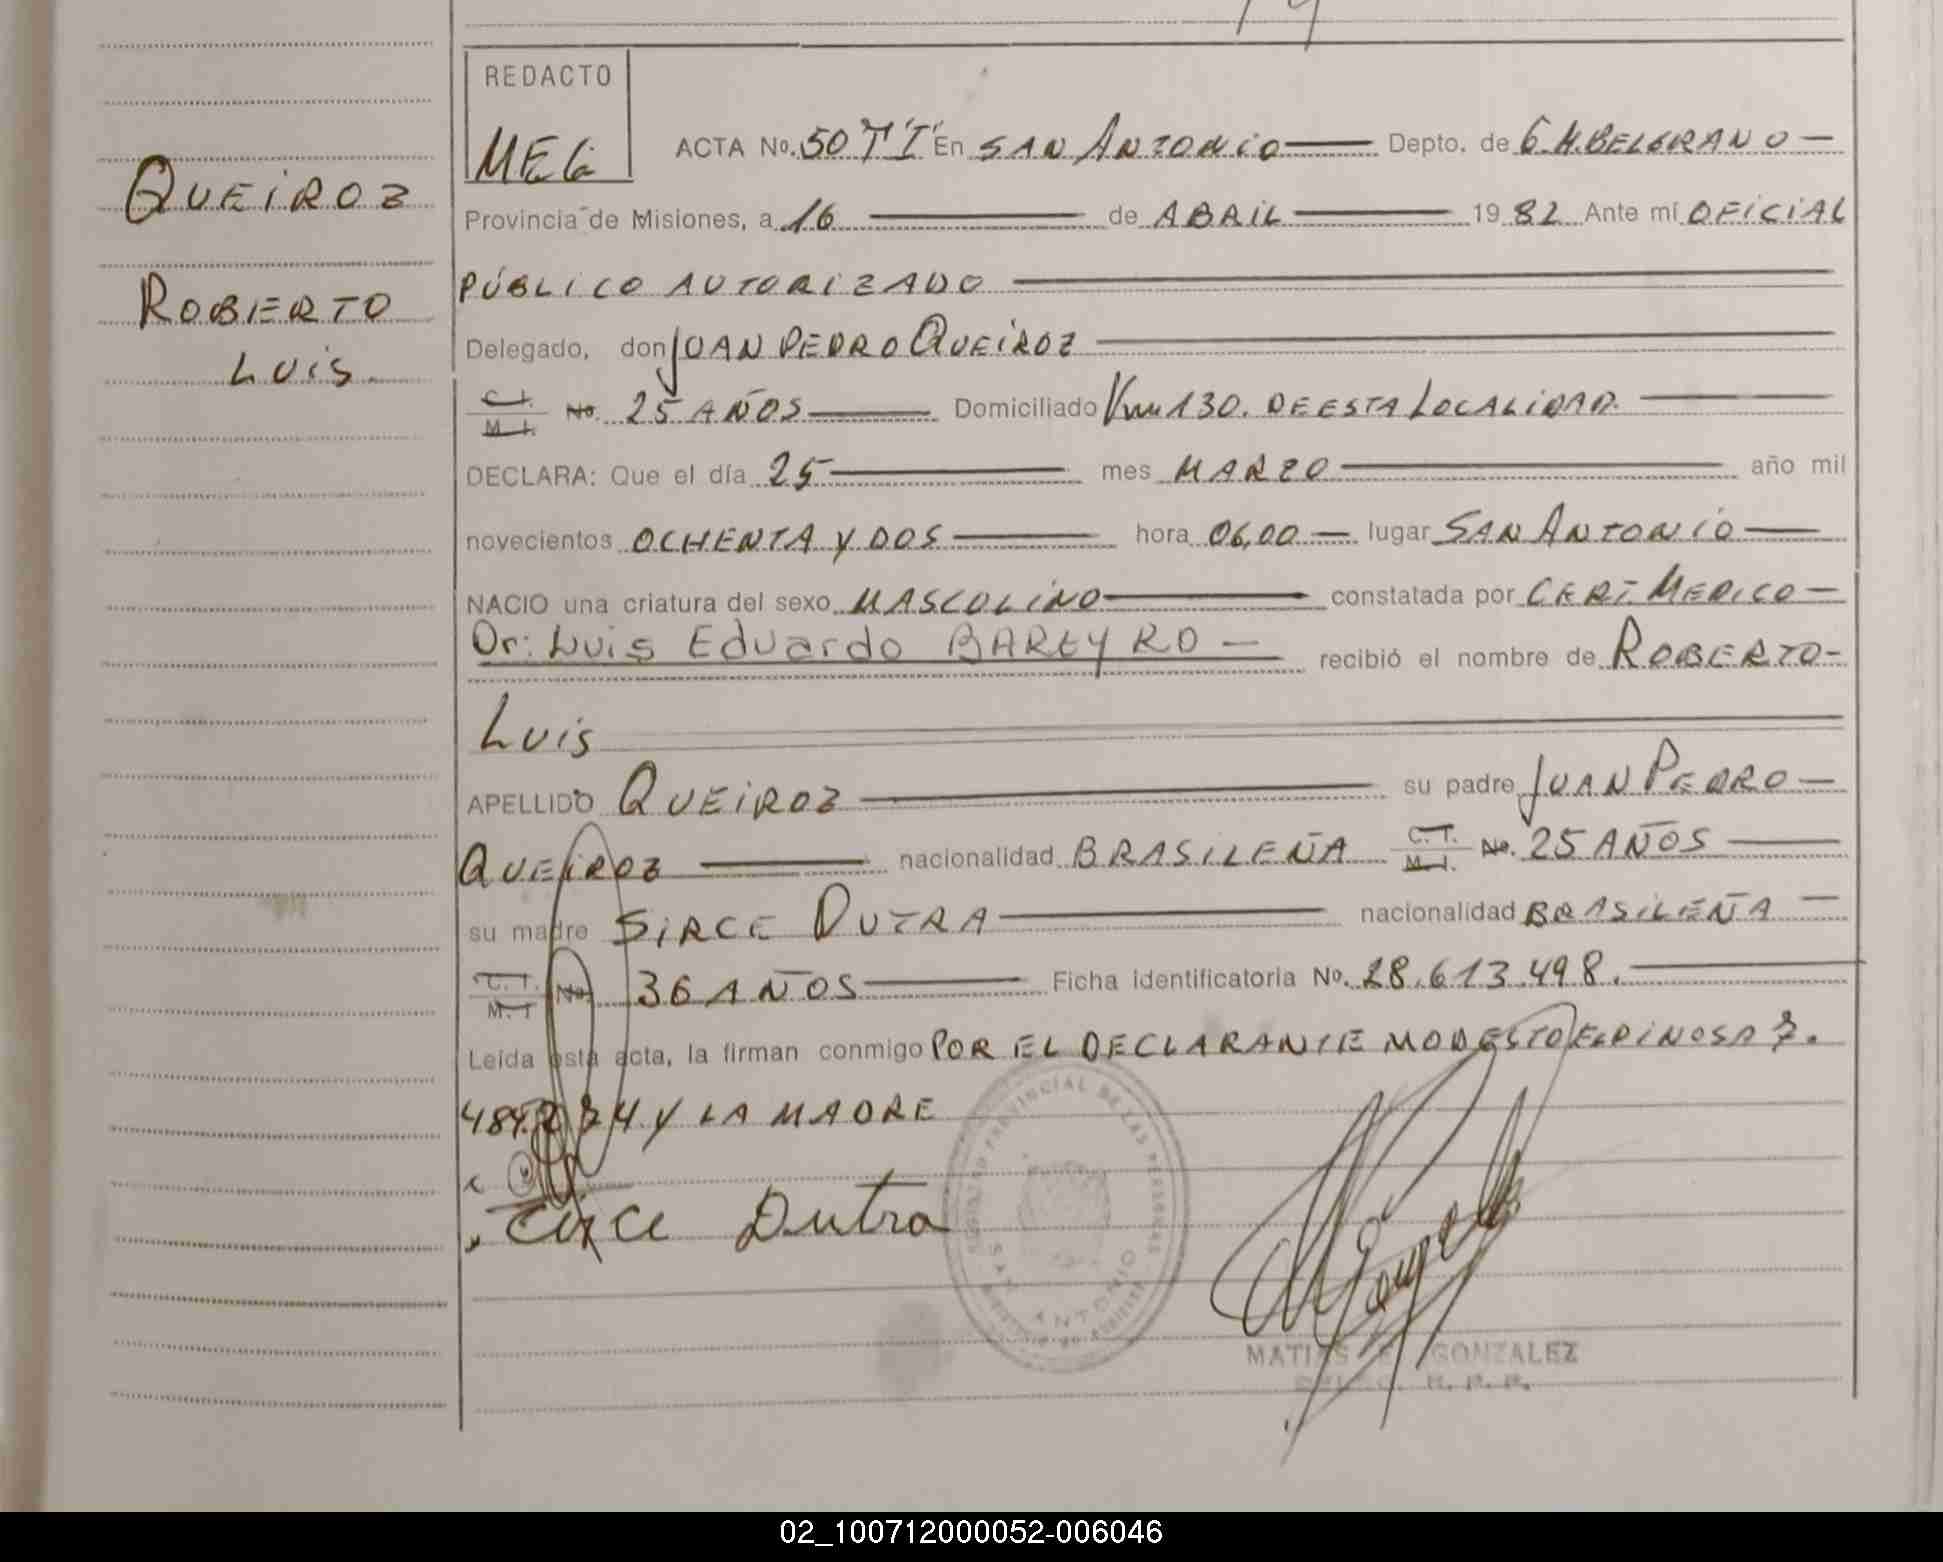 QUEIROZ
ROBERTO
LUIS.
REDACTO
MEG
ACTA No. 50 T"I" En SAN ANTONIO Depto. de G.M.BELGRANO
Provincia de Misiones, a 16 de ABRIL 1982 Ante mí OFICIAL
PÚBLICO AUTORIZADO
Delegado, don JUAN PEDRO QUEIROZ
C.I. M.I. No. 25 AÑOS Domiciliado Km 130. DE ESTA LOCALIDAD.
DECLARA: Que el día 25 mes MARZO año mil
novecientos OCHENTA Y DOS hora 06,00 lugar SAN ANTONIO
NACIO una criatura del sexo MASCULINO constatada por CERT. MEDICO
Dr: Luis Eduardo BAREYRO recibió el nombre de ROBERTO
LUIS
APELLIDO QUEIROZ su padre JUAN PEDRO
QUEIROZ nacionalidad BRASILEÑA C.I. M.I. No. 25 AÑOS
su madre SIRCE DUTRA nacionalidad BRASILEÑA
C.I. M.I No. 36 AÑOS Ficha identificatoria No. 28.613.498.
Leída esta acta, la firman conmigo POR EL DECLARANTE MODESTO ESPINOSA 7.
Y LA MADRE
Dutra
REGISTRO PROVINCIAL DE LAS PERSONAS
SAN ANTONIO
MATIAS E. GONZALEZ
R. P. P.
02_100712000052-006046